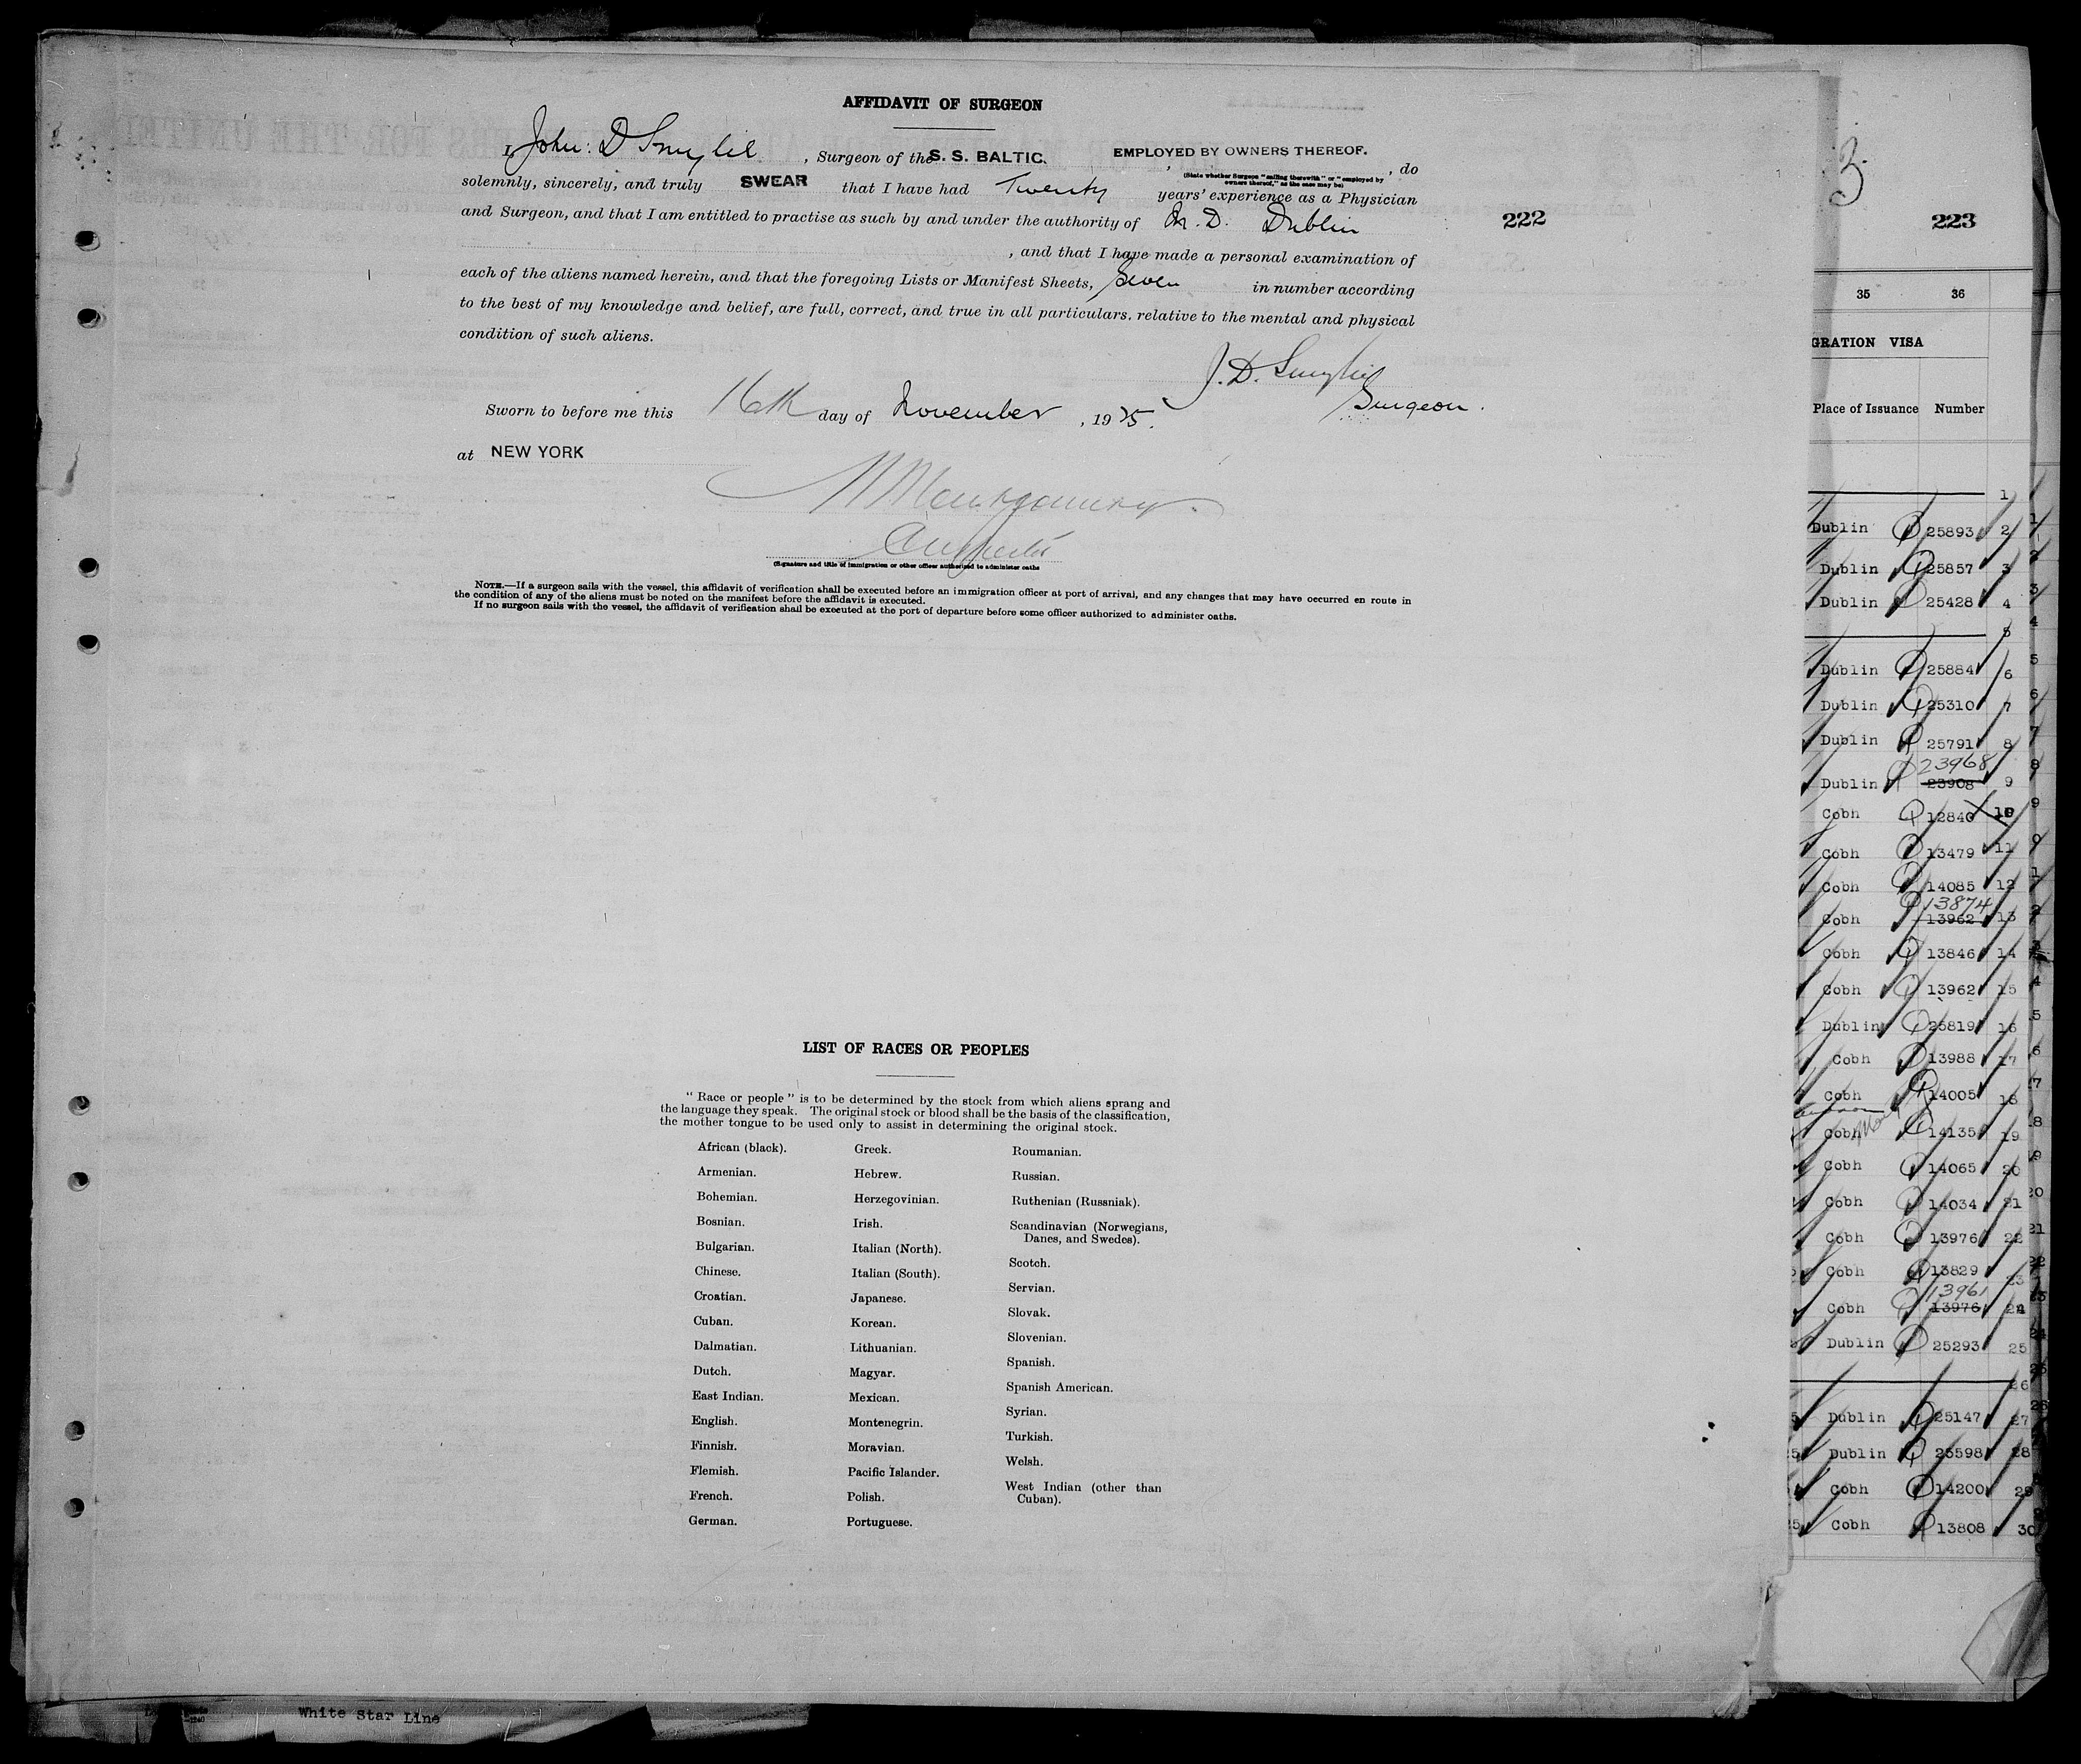 AFFIDAVIT OF SURGEON
I, John. D Smylie , Surgeon of the S. S. BALTIC. , EMPLOYED BY OWNERS THEREOF. , do
(State whether Surgeon "sailing therewith" or "employed by
owners thereof," as the case may be)
solemnly, sincerely, and truly SWEAR that I have had Twenty years' experience as a Physician
and Surgeon, and that I am entitled to practise as such by and under the authority of M. D. Dublin
, and that I have made a personal examination of
each of the aliens named herein, and that the foregoing Lists or Manifest Sheets, Seven in number according
to the best of my knowledge and belief, are full, correct, and true in all particulars, relative to the mental and physical
condition of such aliens.
J. D. Smylie
Surgeon.
Sworn to before me this 16th day of November , 1925.
at NEW YORK
Montgomery.
(Signature and title of immigration or other officer authorized to administer oaths
NOTE.—If a surgeon sails with the vessel, this affidavit of verification shall be executed before an immigration officer at port of arrival, and any changes that may have occurred en route in
the condition of any of the aliens must be noted on the manifest before the affidavit is executed.
If no surgeon sails with the vessel, the affidavit of verification shall be executed at the port of departure before some officer authorized to administer oaths.
222
LIST OF RACES OR PEOPLES
"Race or people" is to be determined by the stock from which aliens sprang and
the language they speak. The original stock or blood shall be the basis of the classification,
the mother tongue to be used only to assist in determining the original stock.
African (black).
Armenian.
Bohemian.
Bosnian.
Bulgarian.
Chinese.
Croatian.
Cuban.
Dalmatian.
Dutch.
East Indian.
English.
Finnish.
Flemish.
French.
German.
Greek.
Hebrew.
Herzegovinian.
Irish.
Italian (North).
Italian (South).
Japanese.
Korean.
Lithuanian.
Magyar.
Mexican.
Montenegrin.
Moravian.
Pacific Islander.
Polish.
Portuguese.
Roumanian.
Russian.
Ruthenian (Russniak).
Scandinavian (Norwegians,
Danes, and Swedes).
Scotch.
Servian.
Slovak.
Slovenian.
Spanish.
Spanish American.
Syrian.
Turkish.
Welsh.
West Indian (other than
Cuban).
White Star Line
3
223
35 36
GRATION VISA
Place of Issuance Number
1
Dublin 25893 2
Dublin 25857 3
Dublin 25428 4
5
Dublin 25884 6
Dublin 25310 7
Dublin 25791 8
23968
Dublin 23908 9
Cobh 12840 10
Cobh 13479 11
Cobh 14085 12
13874
Cobh 13962 13
Cobh 13846 14
Cobh 13962 15
Dublin 25819 16
Cobh 13988 17
Cobh 14005 18
Cobh 14135 19
Cobh 14065 20
Cobh 14034 21
Cobh 13976 22
Cobh 13829 23
13961
Cobh 13976 24
Dublin 25293 25
26
Dublin 25147 27
Dublin 25598 28
Cobh 14200 29
Cobh 13808 30